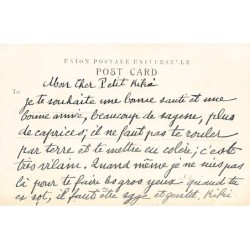 UNION POSTALE UNIVERSELLE
POST CARD
To
Mon Cher Petit Kiki
je te souhaite une bonne santé et une
bonne année, beaucoup de sagesse, plus
de caprices, il ne faut pas te rouler
par terre et te mettre en colère, c'est
très vilain. Quand même je ne suis pas
là pour te faire les gros yeux quand tu
es sot, il faut être sage et gentil, Kiki